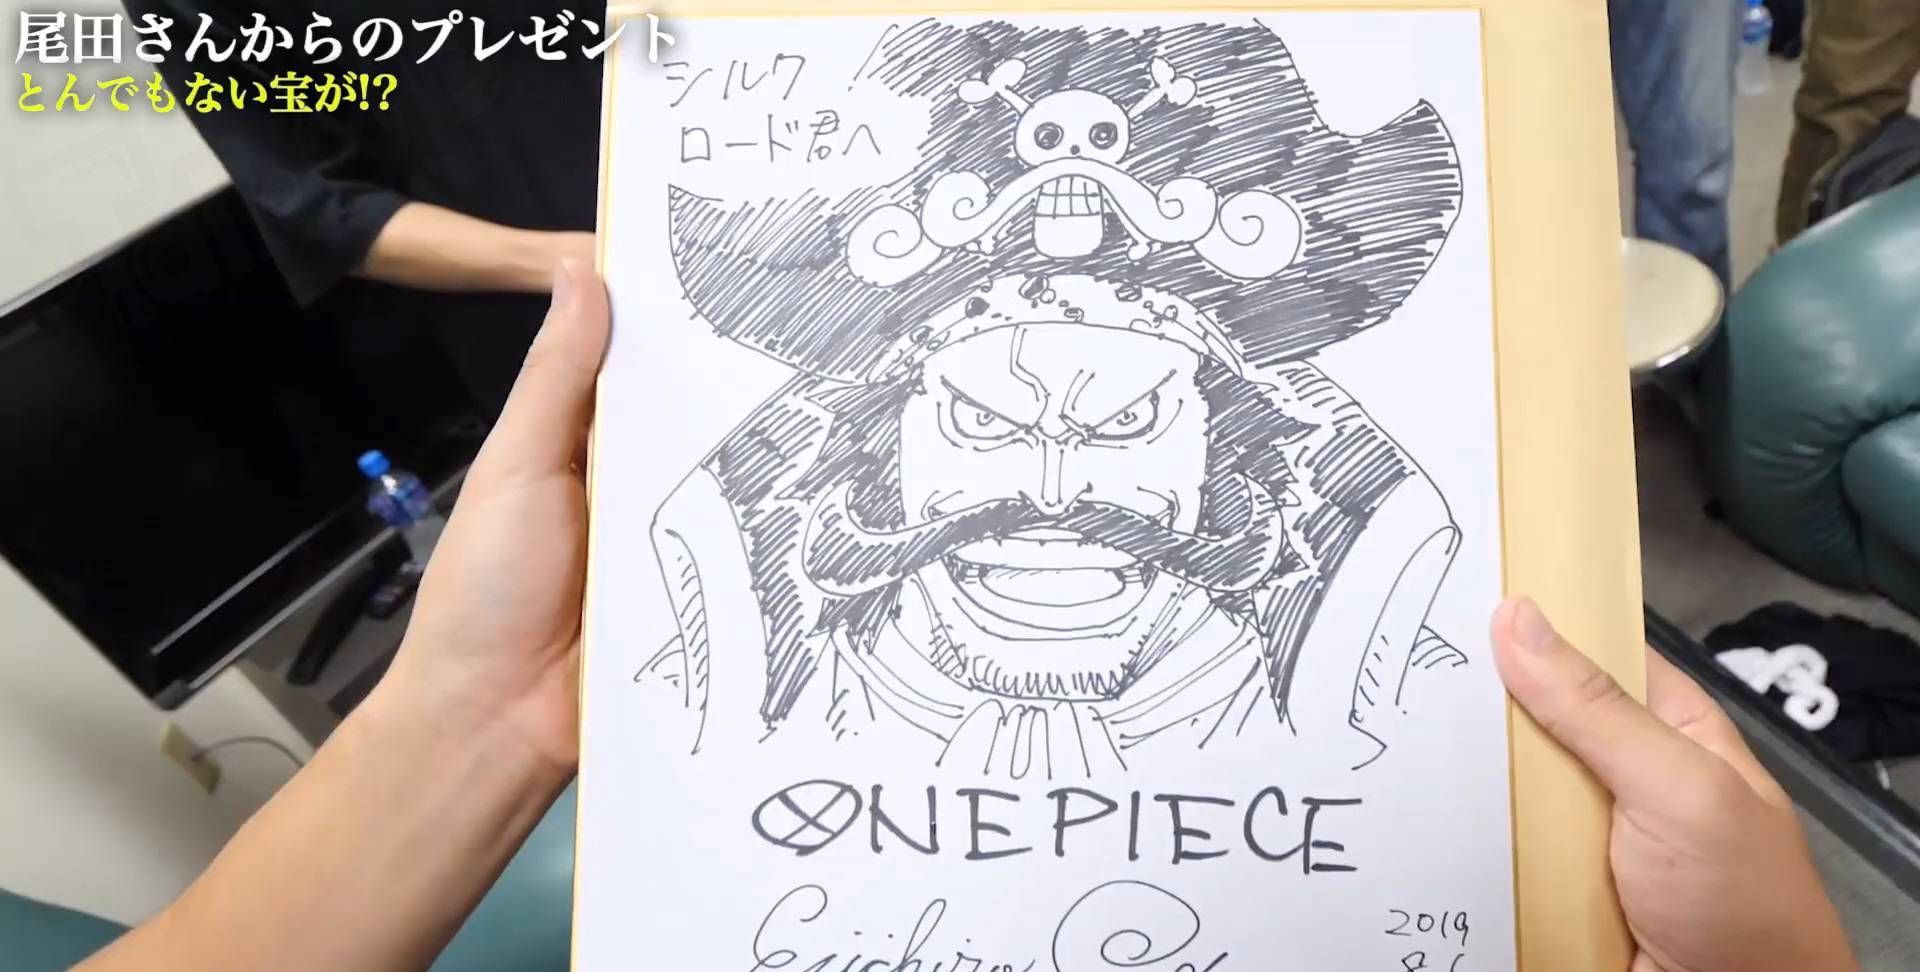 尾田さんからのプレゼント
とんでもない宝が!?
シルク
ロード君へ
ONE PIECE
Eiichiro
2019